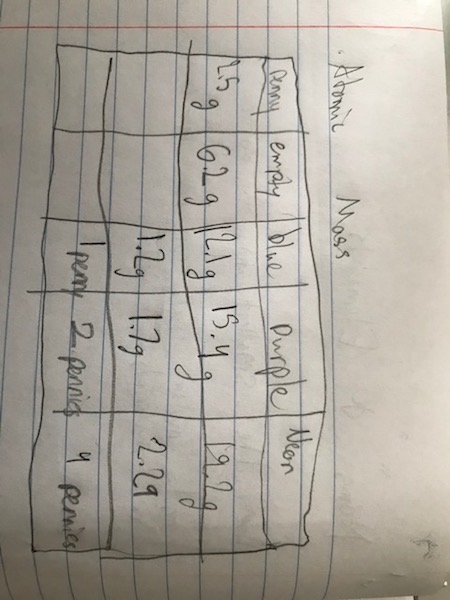 Atomic Mass
penny empty blue purple Neon
2.5 g 6.2 g 12.1g 15.4 g 19.2g
1.2g 1.7g 2.2g
1 penny 2 pennies 4 pennies